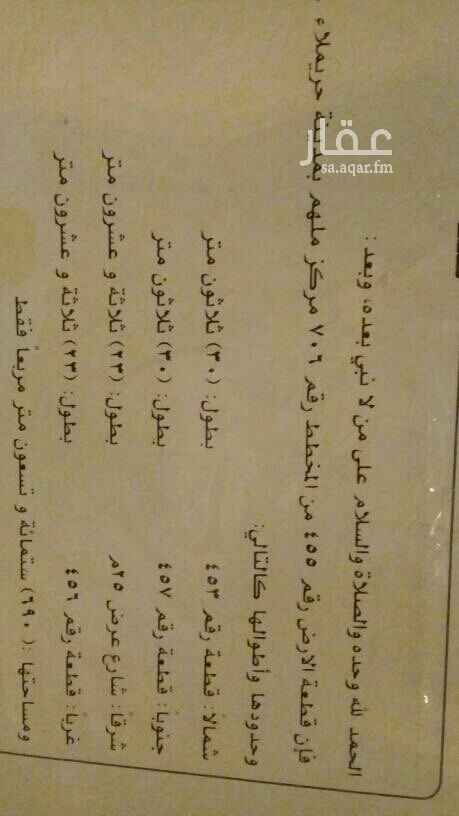 الحمد لله وحده والصلاة والسلام على من لا نبي بعده، وبعد :
فإن قطعة الارض رقم ٤٥٥ من المخطط رقم ٧٠٦ مركز ملهم بمدينة حريملاء
وحدودها وأطوالها كالتالي:
شمالاً: قطعة رقم ٤٥٣ بطول: (٣٠) ثلاثون متر
جنوباً: قطعة رقم ٤٥٧ بطول: (٣٠) ثلاثون متر
شرقاً: شارع عرض ٢٥م بطول: (٢٣) ثلاثة و عشرون متر
غرباً: قطعة رقم ٤٥٦ بطول: (٢٣) ثلاثة و عشرون متر
ومساحتها :(٦٩٠) ستمائة و تسعون متر مربعاً فقط
عقار
sa.aqar.fm